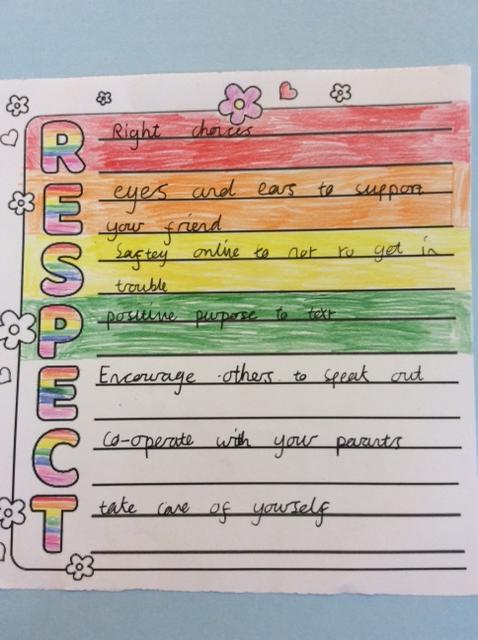 R Right choices
E eyes and ears to support
your friend
S Saftey online to not to get in
trouble
P positive purpose to text
E Encourage others to speak out
C Co-operate with your parants
T take care of yourself